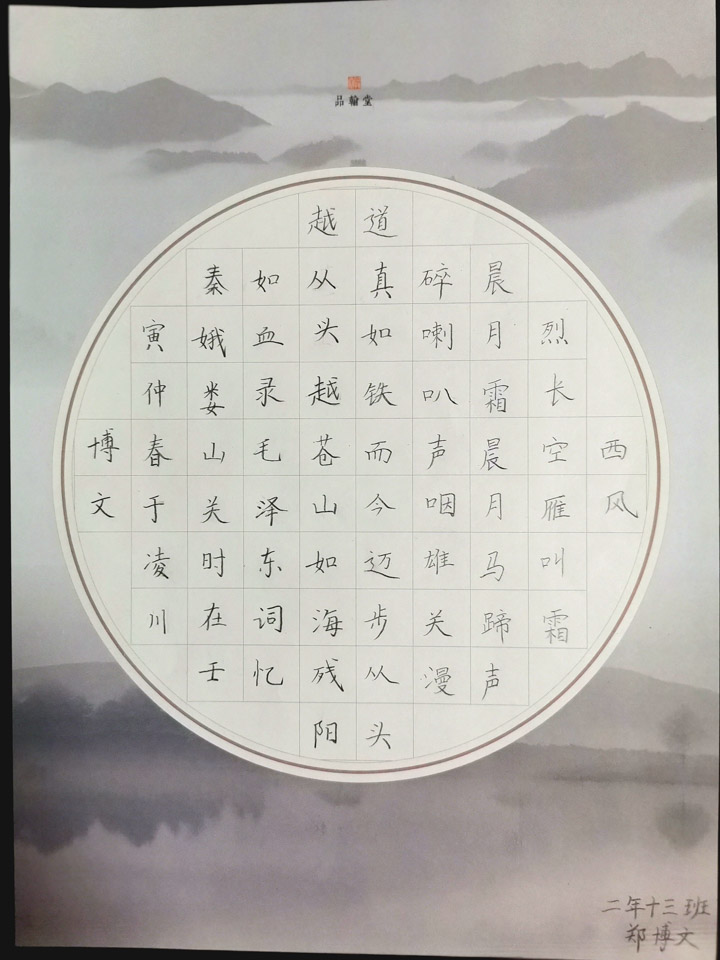 品翰堂
西风
烈长空雁叫霜
晨月霜晨月马蹄声
碎喇叭声咽雄关漫
道真如铁而今迈步从头
越从头越苍山如海残阳
如血录毛泽东词忆
秦娥娄山关时在壬
寅仲春于凌川
博文
二年十三班
郑博文